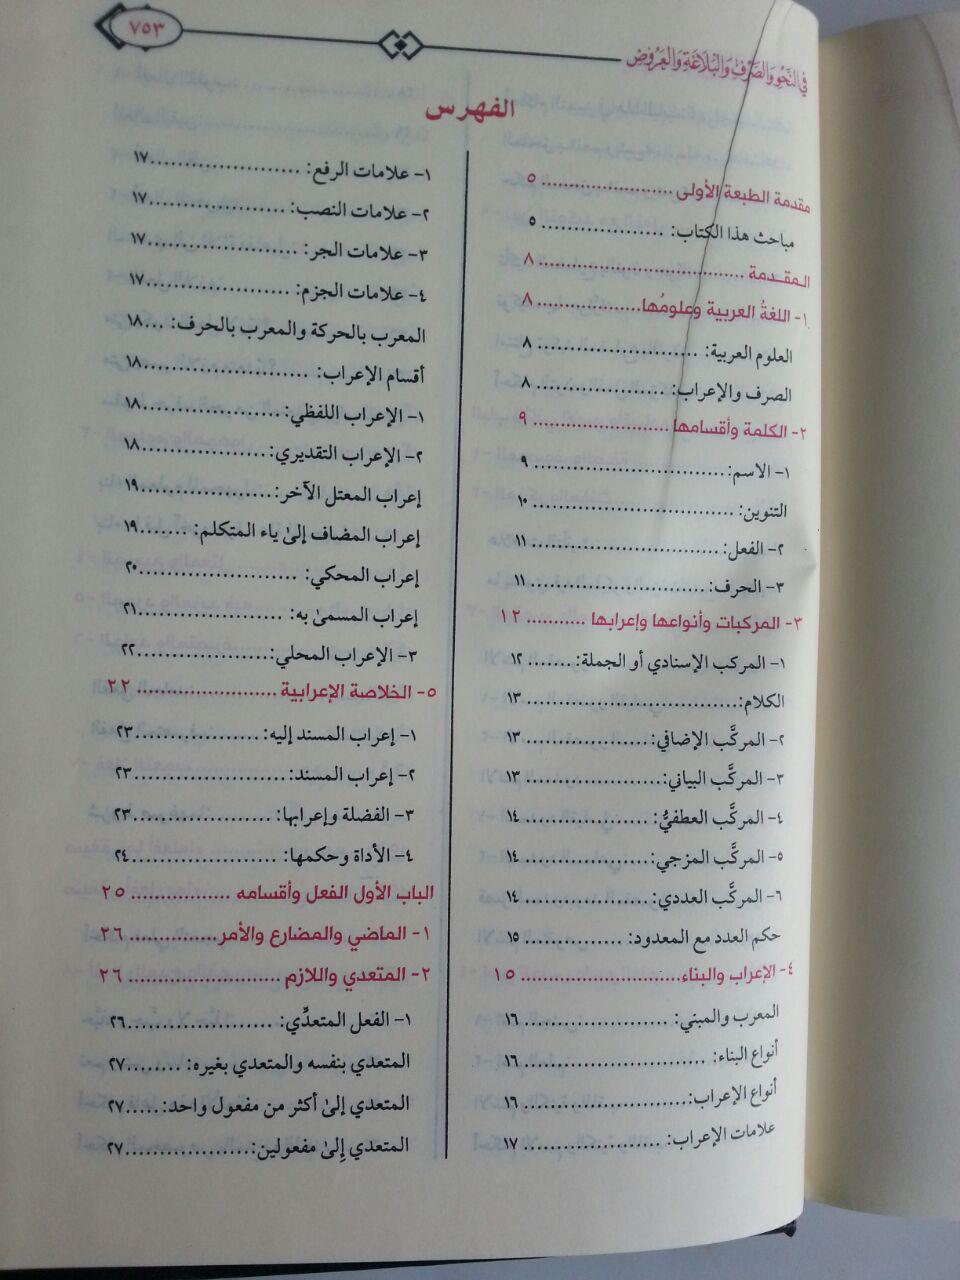 في النحو والصرف والبلاغة والعروض
٧٥٣
الفهرس
مقدمة الطبعة الأولى ...................... ٥
مباحث هذا الكتاب: .................. ٥
المقـدمة ............................ ٨
١- اللغةُ العربية وعلومُها................ ٨
العلوم العربية: ....................... ٨
الصرف والإعراب: .................. ٨
٢- الكلمة وأقسامها ...................... ٩
١- الاسم: ............................ ٩
التنوين: ............................ ١٠
٢- الفعل: ............................ ١١
٣- الحرف: .......................... ١١
٣- المركبات وأنواعها وإعرابها ........... ١٢
١- المركب الإسنادي أو الجملة: ....... ١٢
الكلام: ............................ ١٣
٢- المركَّب الإضافي: .................. ١٣
٣- المركَّب البياني: .................... ١٣
٤- المركَّب العطفيُّ: .................. ١٤
٥- المركَّب المزجي: .................. ١٤
٦- المركَّب العددي: .................. ١٤
حكم العدد مع المعدود: ............. ١٥
٤- الإعراب والبناء........................ ١٥
المعرب والمبني: .................... ١٦
أنواع البناء: ........................ ١٦
أنواع الإعراب: ...................... ١٦
علامات الإعراب: .................. ١٧
١- علامات الرفع: .................... ١٧
٢- علامات النصب: .................. ١٧
٣- علامات الجر: .................... ١٧
٤- علامات الجزم: .................... ١٧
المعرب بالحركة والمعرب بالحرف: ... ١٨
أقسام الإعراب: .................... ١٨
١- الإعراب اللفظي: .................. ١٨
٢- الإعراب التقديري: ................ ١٨
إعراب المعتل الآخر: ................ ١٩
إعراب المضاف إلىٰ ياء المتكلم: ....... ١٩
إعراب المحكي: .................... ٢٠
إعراب المسمىٰ به: .................. ٢١
٣- الإعراب المحلي: .................. ٢٢
٥- الخلاصة الإعرابية .................... ٢٢
١- إعراب المسند إليه: ................ ٢٣
٢- إعراب المسند: .................... ٢٣
٣- الفضلة وإعرابها: .................. ٢٣
٤- الأداة وحكمها: .................... ٢٤
الباب الأول الفعل وأقسامه ................ ٢٥
١- الماضي والمضارع والأمر.............. ٢٦
٢- المتعدي واللازم ...................... ٢٦
١- الفعل المتعدِّي: .................... ٢٦
المتعدي بنفسه والمتعدي بغيره: ........ ٢٧
المتعدي إلىٰ أكثر من مفعول واحد: ..... ٢٧
المتعدي إلىٰ مفعولين: ................ ٢٧